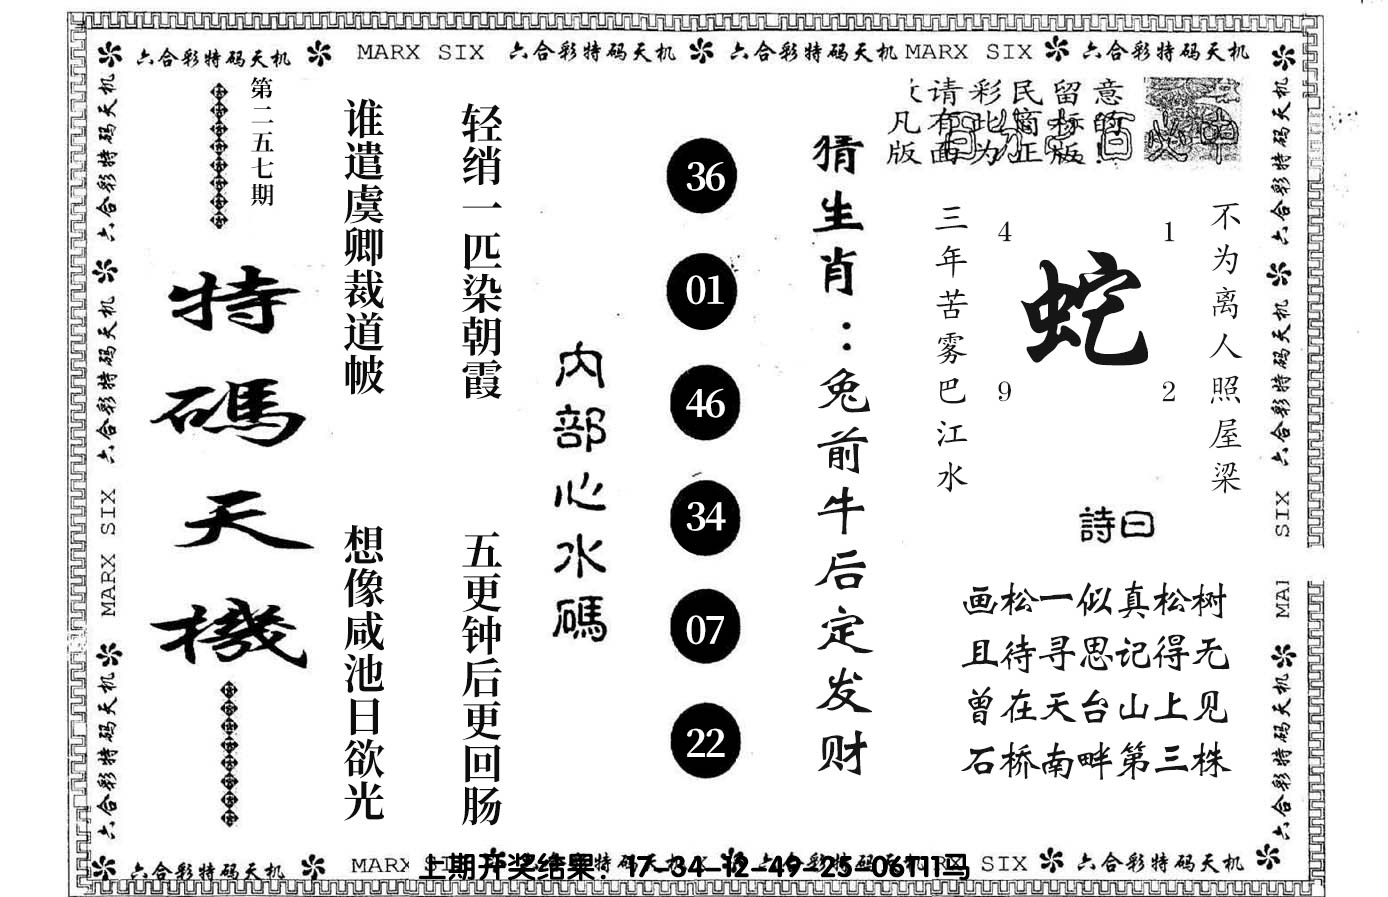 六合彩特码天机 MARX SIX 六合彩特码天机 六合彩特码天机 MARX SIX 六合彩特码天机
第二五七期
特碼天機
谁遣虞卿裁道帔
想像咸池日欲光
轻绡一匹染朝霞
五更钟后更回肠
内部心水碼
36
01
46
34
07
22
猜生肖：兔前牛后定发财
请彩民留意
凡有此商标的
版面为正版!
三年苦雾巴江水
4
1
蛇
9
2
不为离人照屋梁
詩曰
画松一似真松树
且待寻思记得无
曾在天台山上见
石桥南畔第三株
六合彩特码天机 MARX SIX 六合彩特码天机 六合彩特码天机
六合彩特码天机 六合彩特码天机 SIX MA 六合彩特码天机
六合彩特码天机 MARX SIX 六合彩特码天机 SIX 六合彩特码天机
上期开奖结果：17-34-12-49-25-06